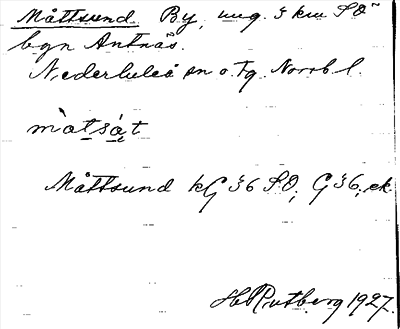 Måttsund By, ung. 3 km SO
bgn Antnäs.
Nederluleå sn o. tg. Norrb. l.
màtsa̤t
Måttsund kG 36 SO; G 36; ek.
H. Rutberg 1927.